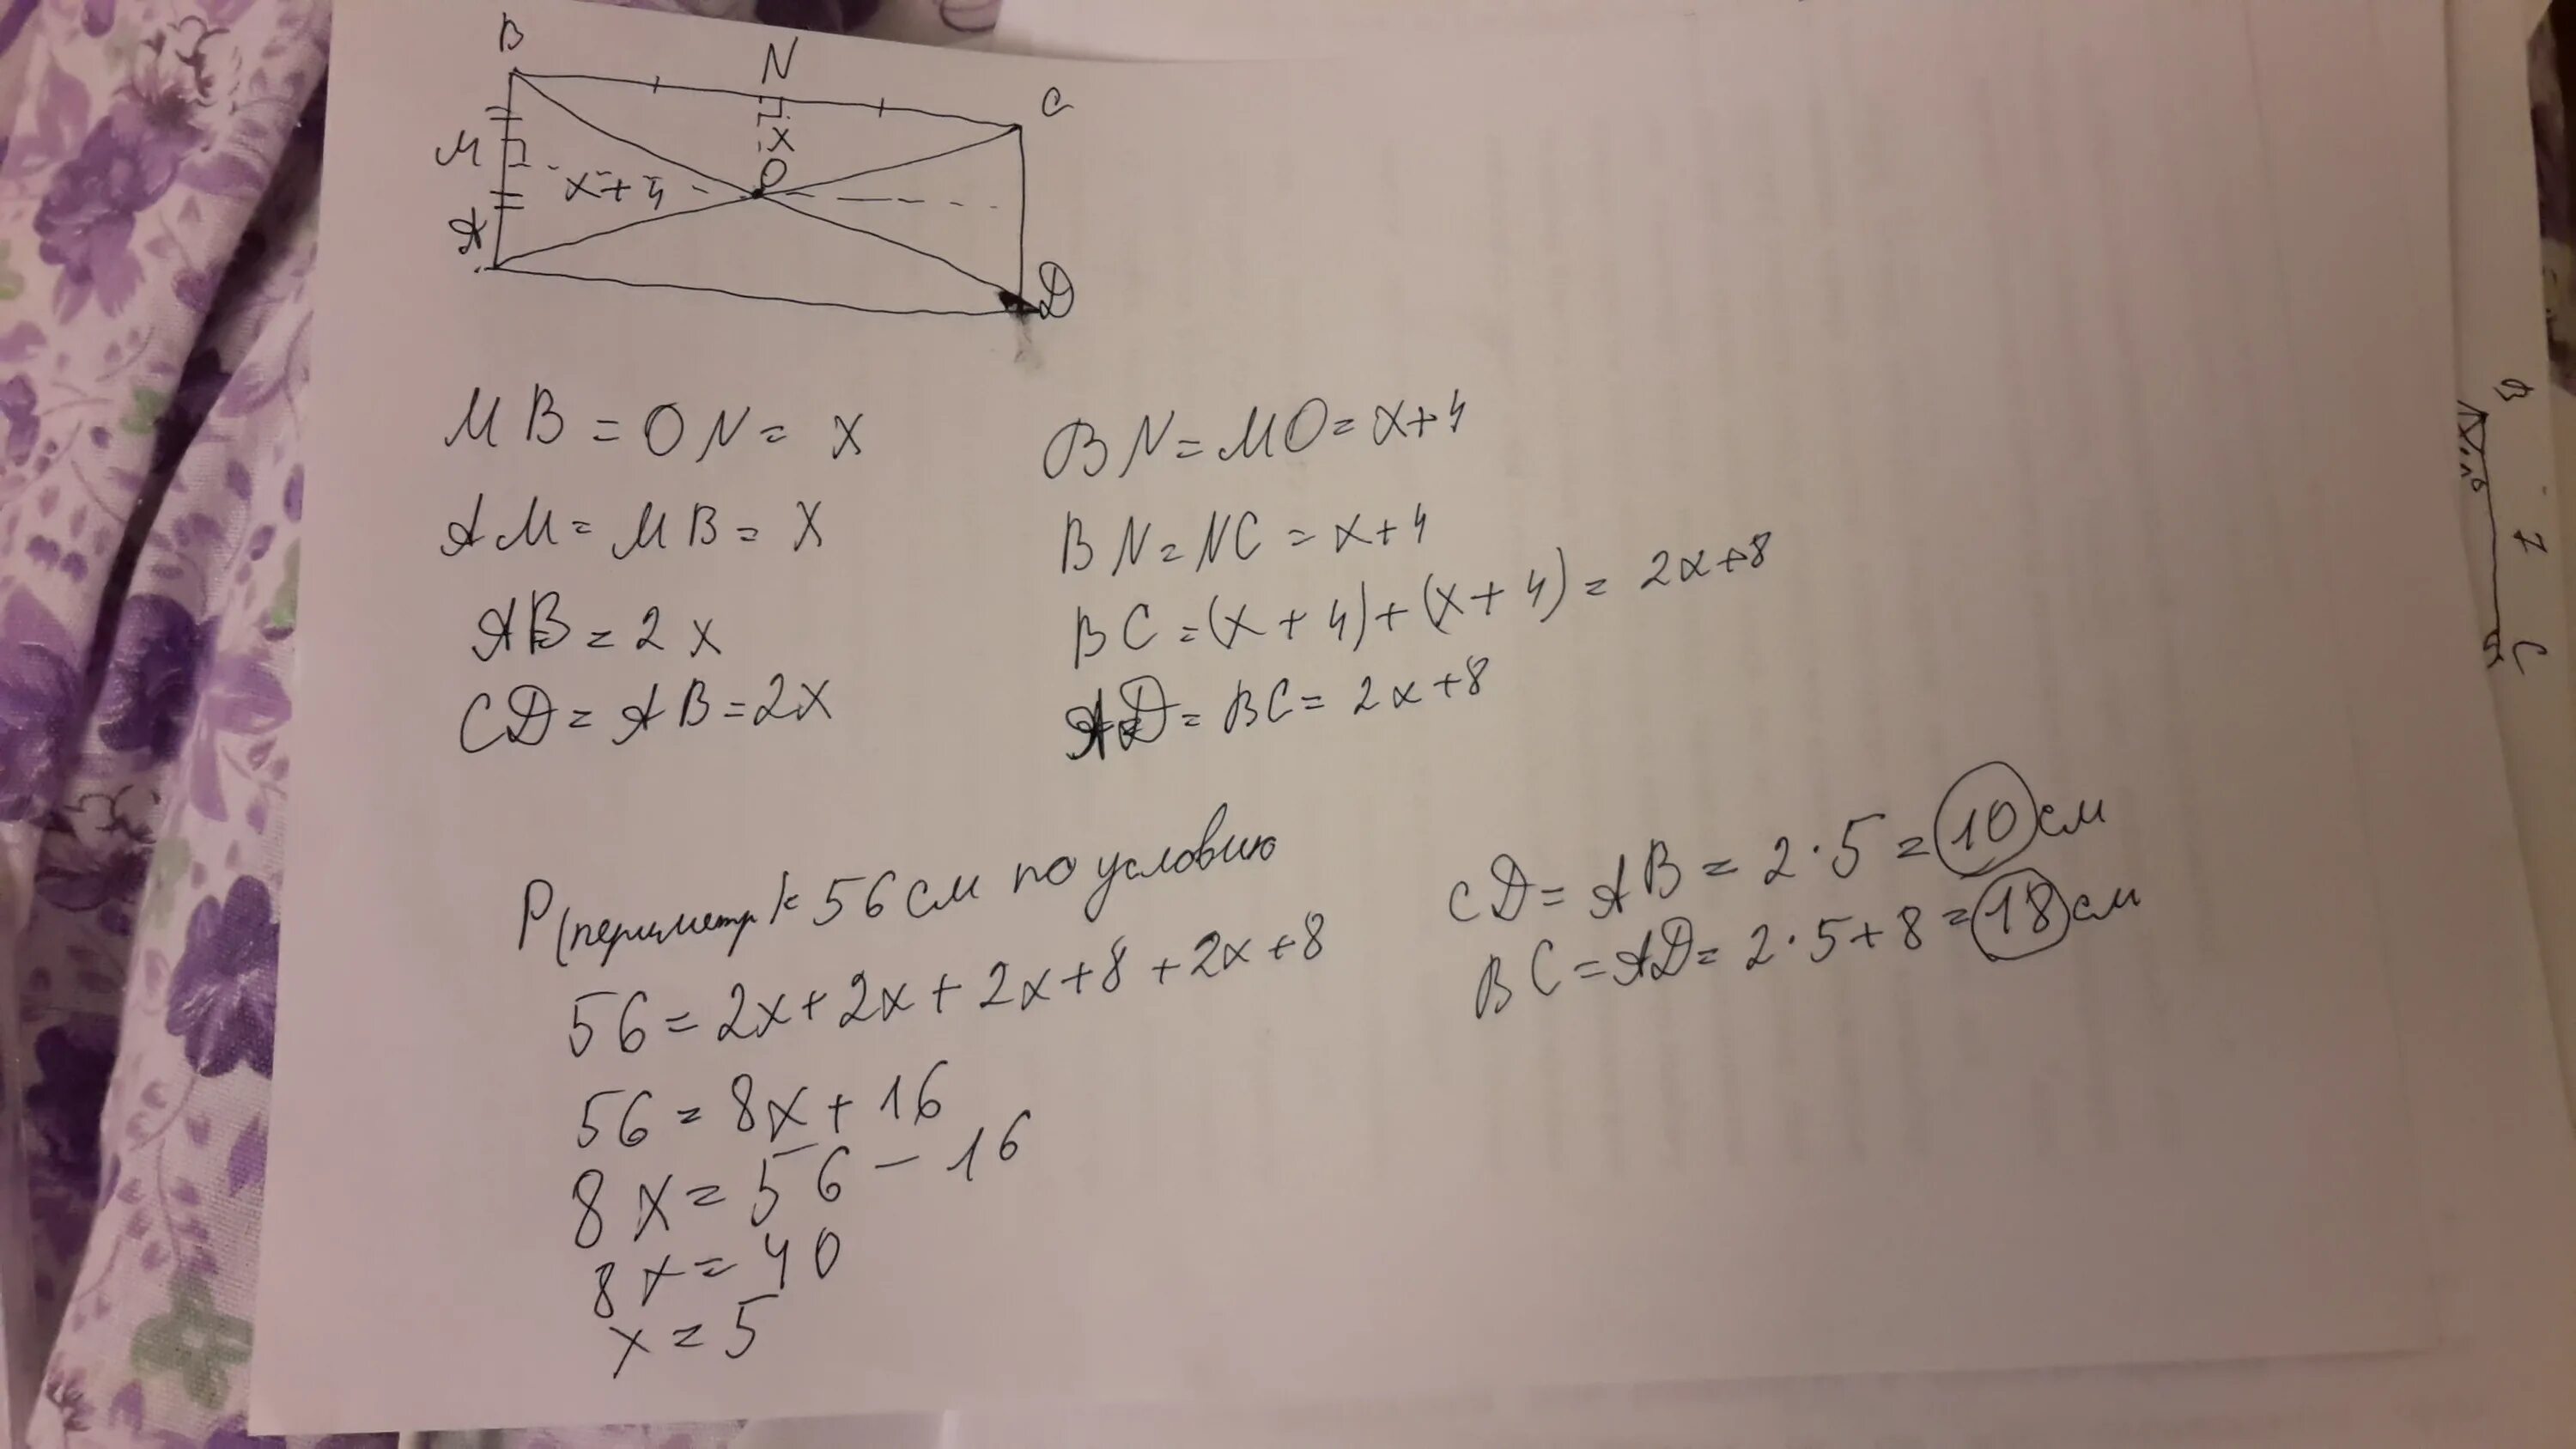 B
N
C
M
x
O
x + 4
A
D
MB = ON = x
AM = MB = x
AB = 2x
CD = AB = 2x
BN = MO = x+4
BN = NC = x+4
BC = (x + 4) + (x + 4) = 2x+8
AD = BC = 2x+8
P(периметр) = 56 см по условию
56 = 2x + 2x + 2x + 8 + 2x + 8
56 = 8x + 16
8x = 56 - 16
8x = 40
x = 5
CD = AB = 2 · 5 = 10 см
BC = AD = 2 · 5 + 8 = 18 см
B
C